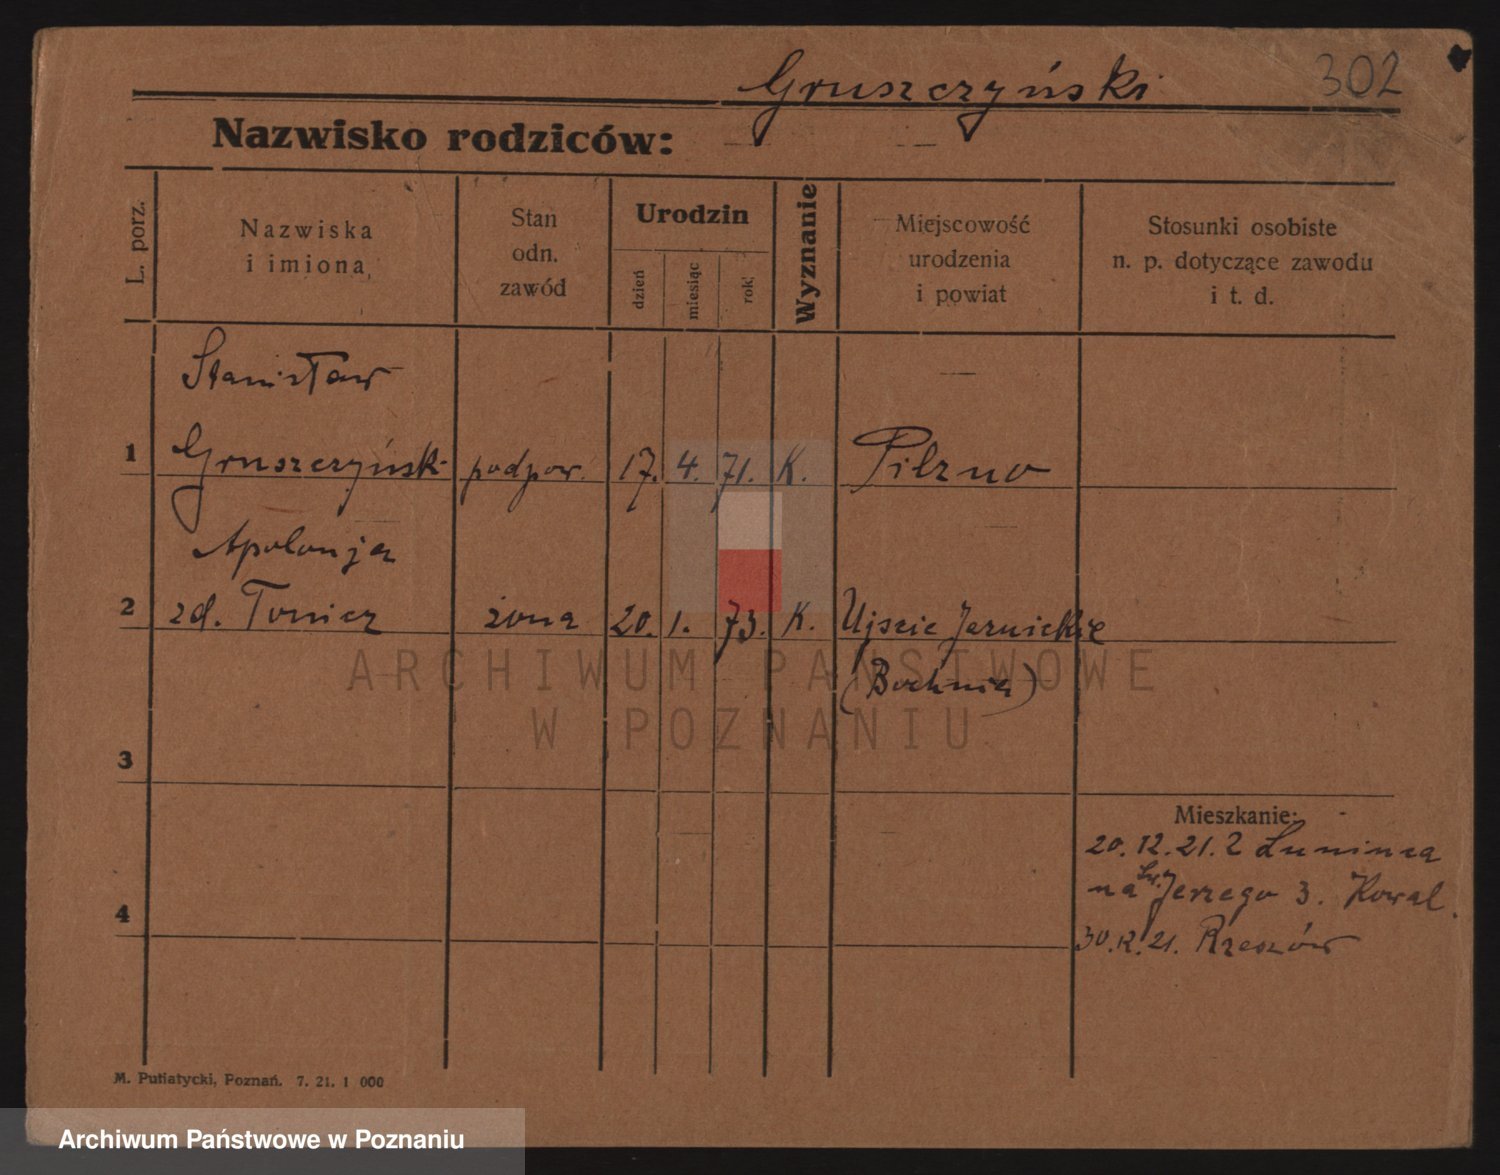 Gruszczyński 302
Nazwisko rodziców:
L. porz.
Nazwiska
i imiona
Stan
odn.
zawód
Urodzin
dzień
miesiąc
rok
Wyznanie
Miejscowość
urodzenia
i powiat
Stosunki osobiste
n. p. dotyczące zawodu
i t. d.
Stanisław
1 Gruszczyński podpow. 17. 4. 71. K. Pilzno
Apolonja
2 zd. żona 20. 1. 73. K. Ujście Jezuickie
(Bochnia)
ARCHIWUM PAŃSTWOWE
W POZNANIU
3
Mieszkanie:
20.12.21. z Łunińca
na Św. Jerzego 3. Kowal.
4
30.12.21. Rzeszów
M. Putiatycki, Poznań. 7. 21. 1 000
Archiwum Państwowe w Poznaniu